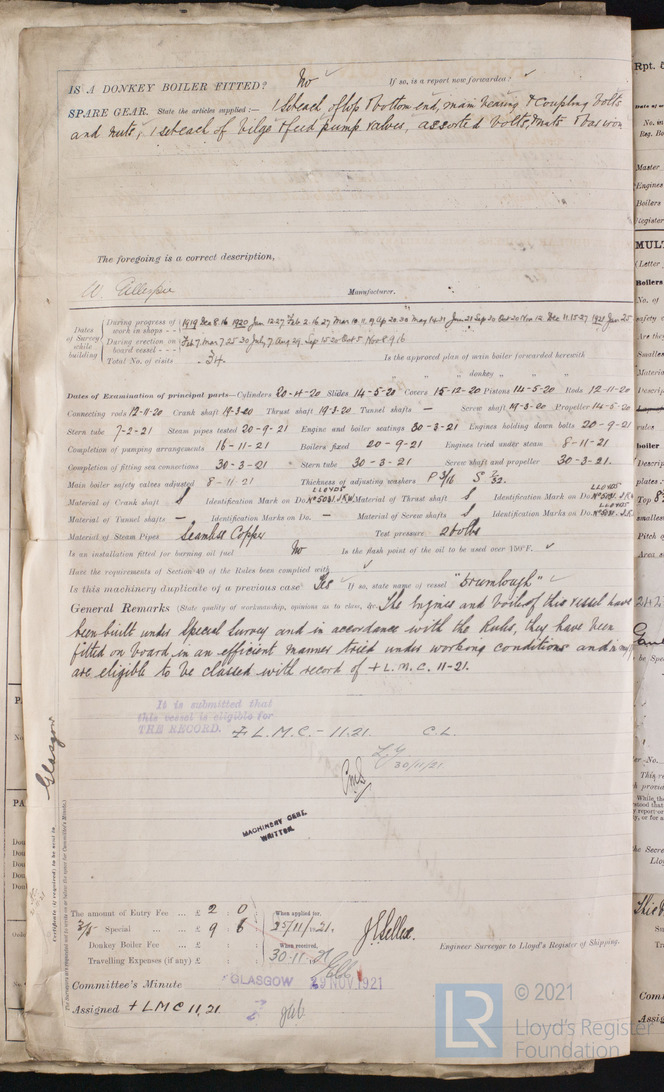 IS A DONKEY BOILER FITTED? No If so, is a report now forwarded? ✓
SPARE GEAR. State the articles supplied:— 1 Set each of top & bottom end, main bearing & coupling bolts
and nuts, 1 set each of bilge & feed pump valves, assorted bolts, nuts & bar iron
The foregoing is a correct description,
W. Gillespie Manufacturer.
Dates of Survey while building
During progress of work in shops - - 1919 Dec 8. 16 1920 Jan 12. 27 Feb 2. 16. 27 Mar 10. 11. 19 Ap 20. 30 May 14. 21 Jun 21 Sep 20 Oct 20 Nov 12. Dec 11. 15. 27 1921 Jan 25
During erection on board vessel - - - Feb 7. Mar 7. 25. 30 July 7. Aug 29. Sep 15. 20 Oct 5 Nov 8. 9. 16
Total No. of visits 34. Is the approved plan of main boiler forwarded herewith
" " " donkey " " "
Dates of Examination of principal parts—Cylinders 20-4-20 Slides 14-5-20 Covers 15-12-20 Pistons 14-5-20 Rods 12-11-20
Connecting rods 12-11-20 Crank shaft 19-3-20 Thrust shaft 19-3-20 Tunnel shafts — Screw shaft 19-3-20 Propeller 14-5-20
Stern tube 7-2-21 Steam pipes tested 20-9-21 Engine and boiler seatings 30-3-21 Engines holding down bolts 20-9-21
Completion of pumping arrangements 16-11-21 Boilers fixed 20-9-21 Engines tried under steam 8-11-21
Completion of fitting sea connections 30-3-21 Stern tube 30-3-21 Screw shaft and propeller 30-3-21.
Main boiler safety valves adjusted 8-11-21 Thickness of adjusting washers P 3/16 S 7/32.
Material of Crank shaft S Identification Mark on Do. LLOYDS No 5031 J.K. Material of Thrust shaft S Identification Mark on Do. LLOYDS No 5031 J.K.
Material of Tunnel shafts — Identification Marks on Do. — Material of Screw shafts S Identification Marks on Do. LLOYDS No 5031 J.K.
Material of Steam Pipes Seamless Copper Test pressure 240 lbs
Is an installation fitted for burning oil fuel No Is the flash point of the oil to be used over 150°F. ✓
Have the requirements of Section 49 of the Rules been complied with ✓
Is this machinery duplicate of a previous case Yes ✓ If so, state name of vessel "Drumlough" ✓
General Remarks (State quality of workmanship, opinions as to class, &c. The Engines and boiler of this vessel have
been built under Special Survey and in accordance with the Rules, they have been
fitted on board in an efficient manner tried under working conditions and in my
are eligible to be classed with record of + L.M.C. 11-21.
It is submitted that
this vessel is eligible for
THE RECORD. + L.M.C. - 11.21. C.L.
30/11/21
MACHINERY CERT.
WRITTEN.
Glasgow
Certificate (if required) to be sent to
(The Surveyors are requested not to write on or below the space for Committee's Minute.)
The amount of Entry Fee ... £ 2 : 0 : When applied for,
Special ... ... £ 9 : 6 : 25/11/1921.
Donkey Boiler Fee ... £ : : When received,
Travelling Expenses (if any) £ : : 30.11.21
Engineer Surveyor to Lloyd's Register of Shipping.
Committee's Minute GLASGOW 29 NOV 1921
Assigned + LMC 11,21
LR © 2021
Lloyd's Register
Foundation